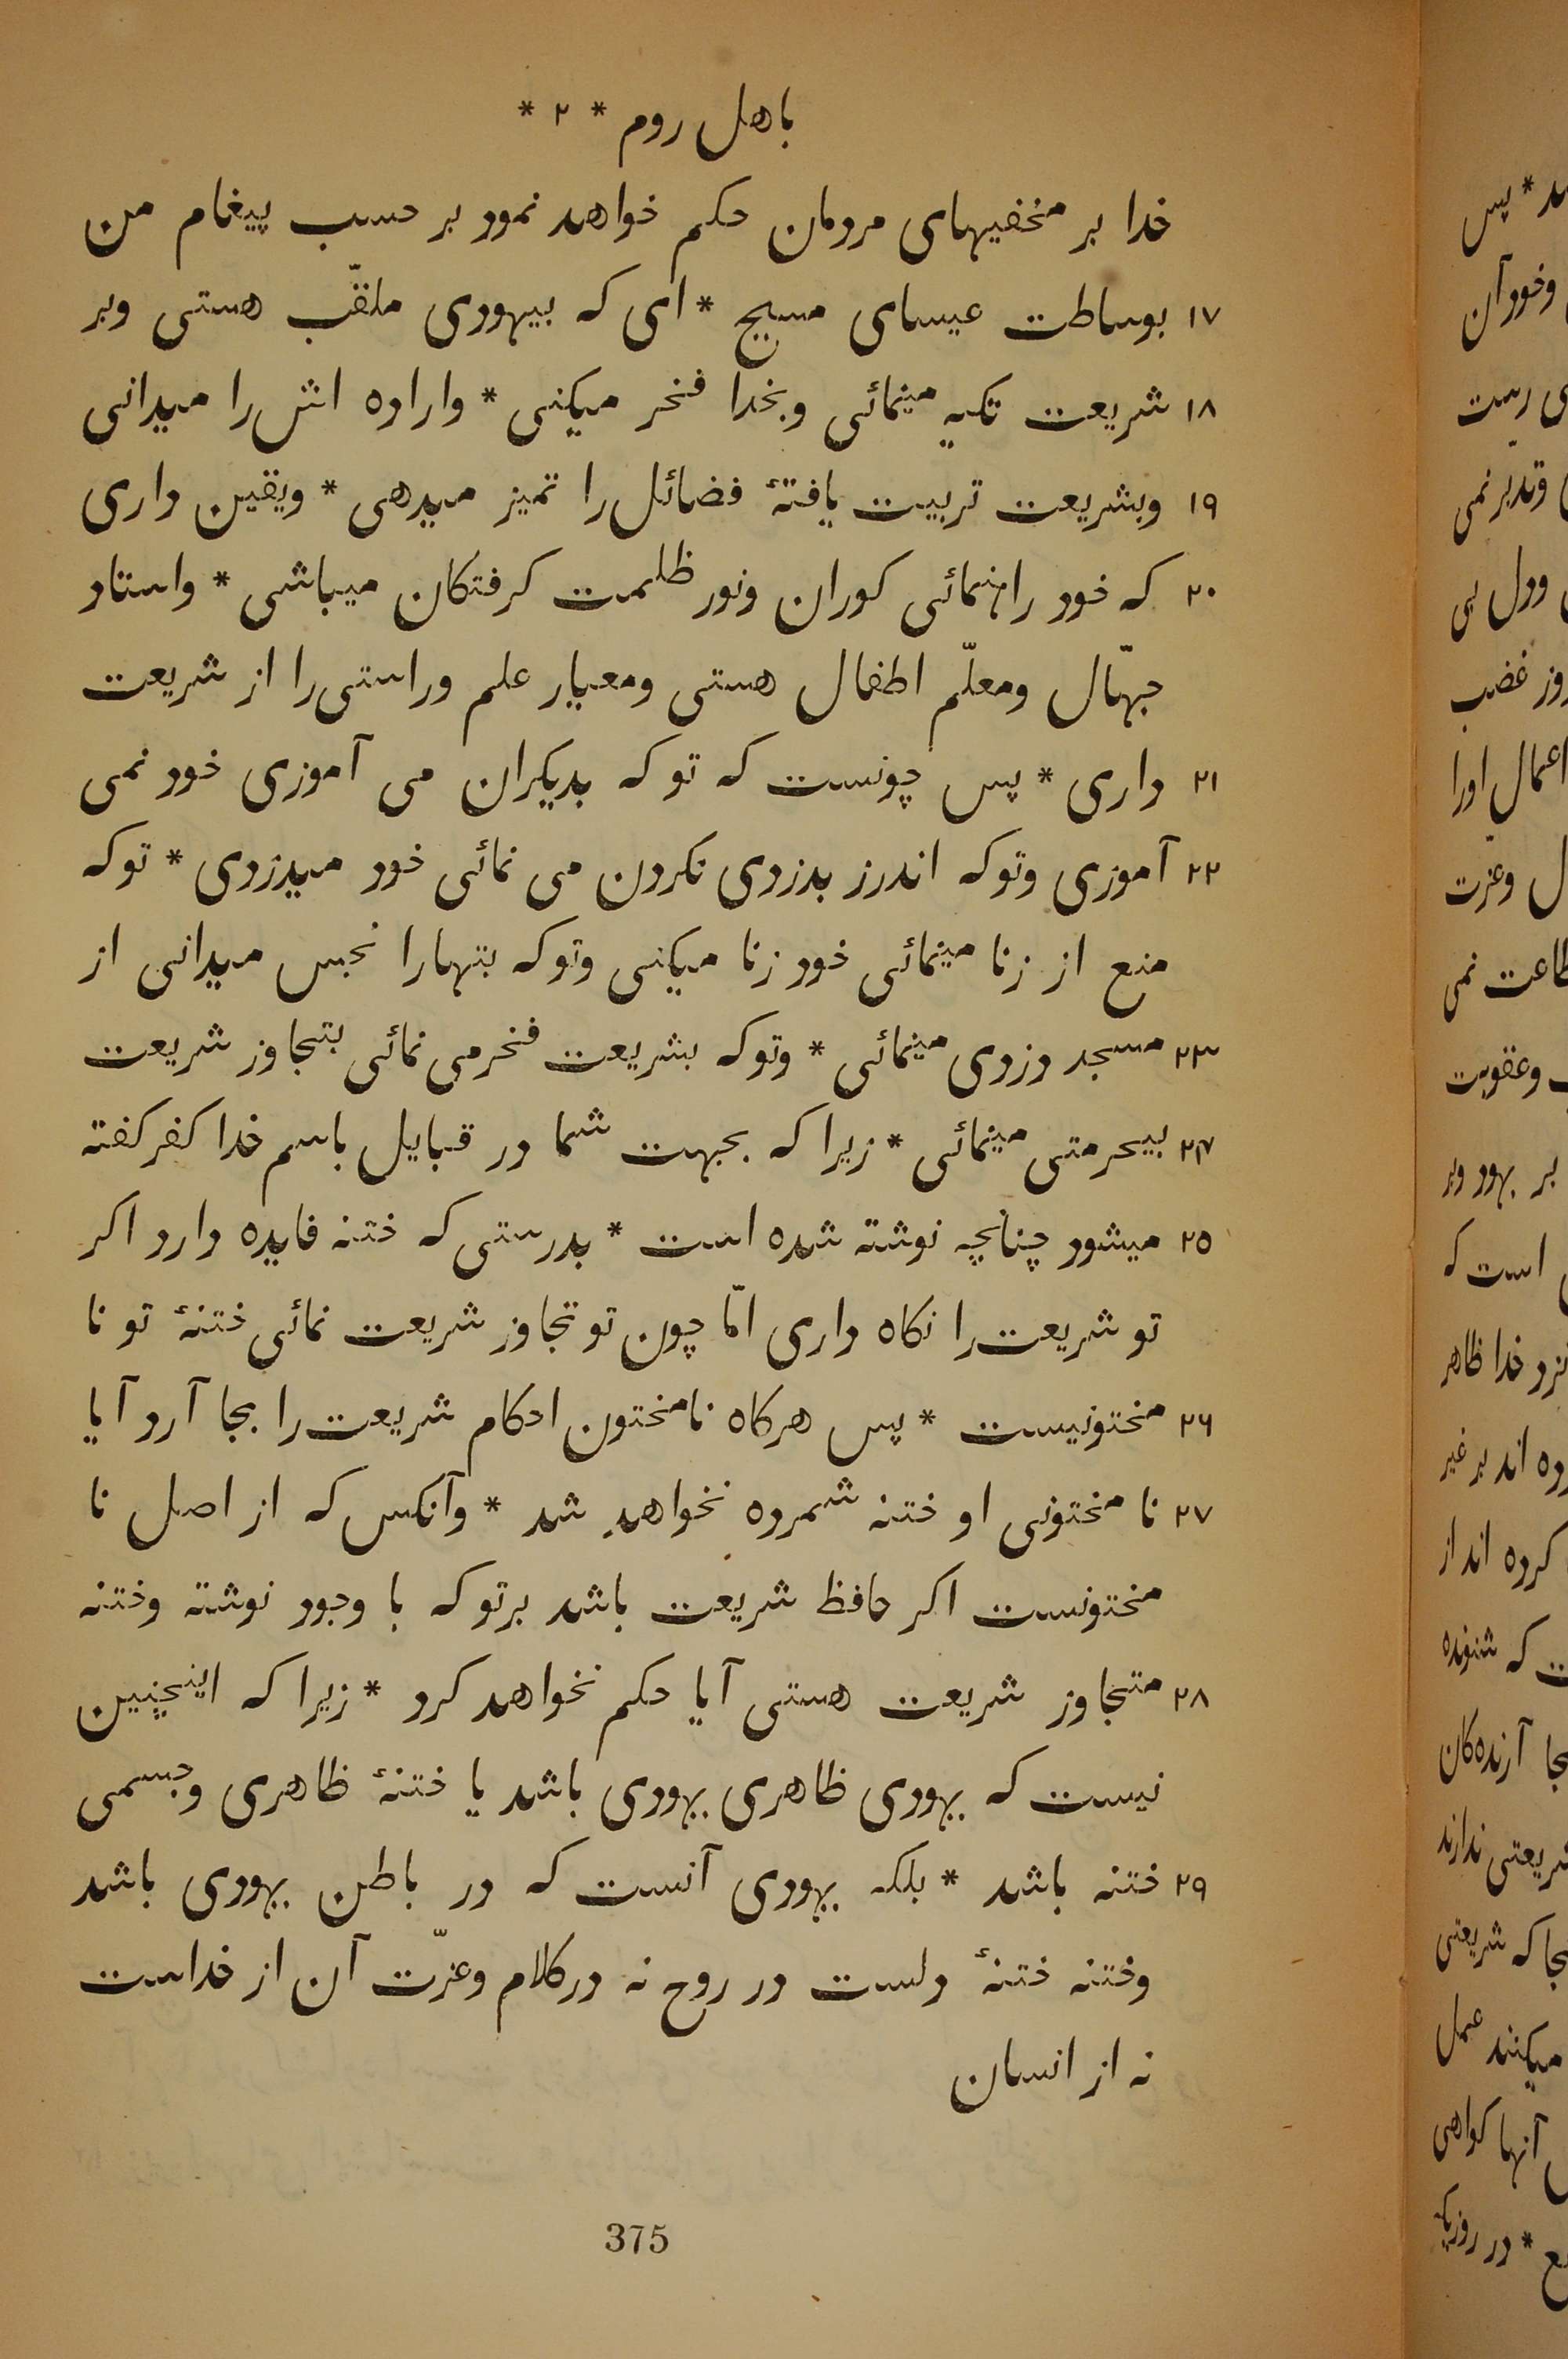 باهل روم * ۲ *
خدا بر مخفیهای مردمان حکم خواهد نمود بر حسب پیغام من
۱۷ بوساطت عیسای مسیح * ای که بیهودی ملقّب هستی وبر
۱۸ شریعت تکیه مینمائی وبخدا فخر میکنی * واراده اش را میدانی
۱۹ وبشریعت تربیت یافتهٔ فضائل را تمیز میدهی * ویقین داری
۲۰ که خود راهنمائی کوران ونور ظلمت کرفتکان میباشی * واستاد
جهّال ومعلّم اطفال هستی ومعیار علم وراستی را از شریعت
۲۱ داری * پس چونست که تو که بدیکران می آموزی خود نمی
۲۲ آموزی وتو که اندرز بدزدی نکردن می نمائی خود میدزدی * تو که
منع از زنا مینمائی خود زنا میکنی وتو که بتهارا نجس میدانی از
۲۳ مسجد دزدی مینمائی * وتو که بشریعت فخر می نمائی بتجاوز شریعت
۲۴ بیحرمتی مینمائی * زیرا که بجهت شما در قبایل باسم خدا کفر کفته
۲۵ میشود چنانچه نوشته شده است * بدرستی که ختنه فایده دارد اکر
تو شریعت را نکاه داری امّا چون تو تجاوز شریعت نمائی ختنهٔ تو نا
۲۶ مختونیست * پس هرکاه نامختون احکام شریعت را بجا آرد آیا
۲۷ نا مختونی او ختنه شمرده نخواهد شد * وآنکس که از اصل نا
مختونست اکر حافظ شریعت باشد بر تو که با وجود نوشته وختنه
۲۸ متجاوز شریعت هستی آیا حکم نخواهد کرد * زیرا که اینچنین
نیست که یهودی ظاهری یهودی باشد یا ختنهٔ ظاهری وجسمی
۲۹ ختنه باشد * بلکه یهودی آنست که در باطن یهودی باشد
وختنه ختنهٔ دلست در روح نه در کلام وعزّت آن از خداست
نه از انسان
375